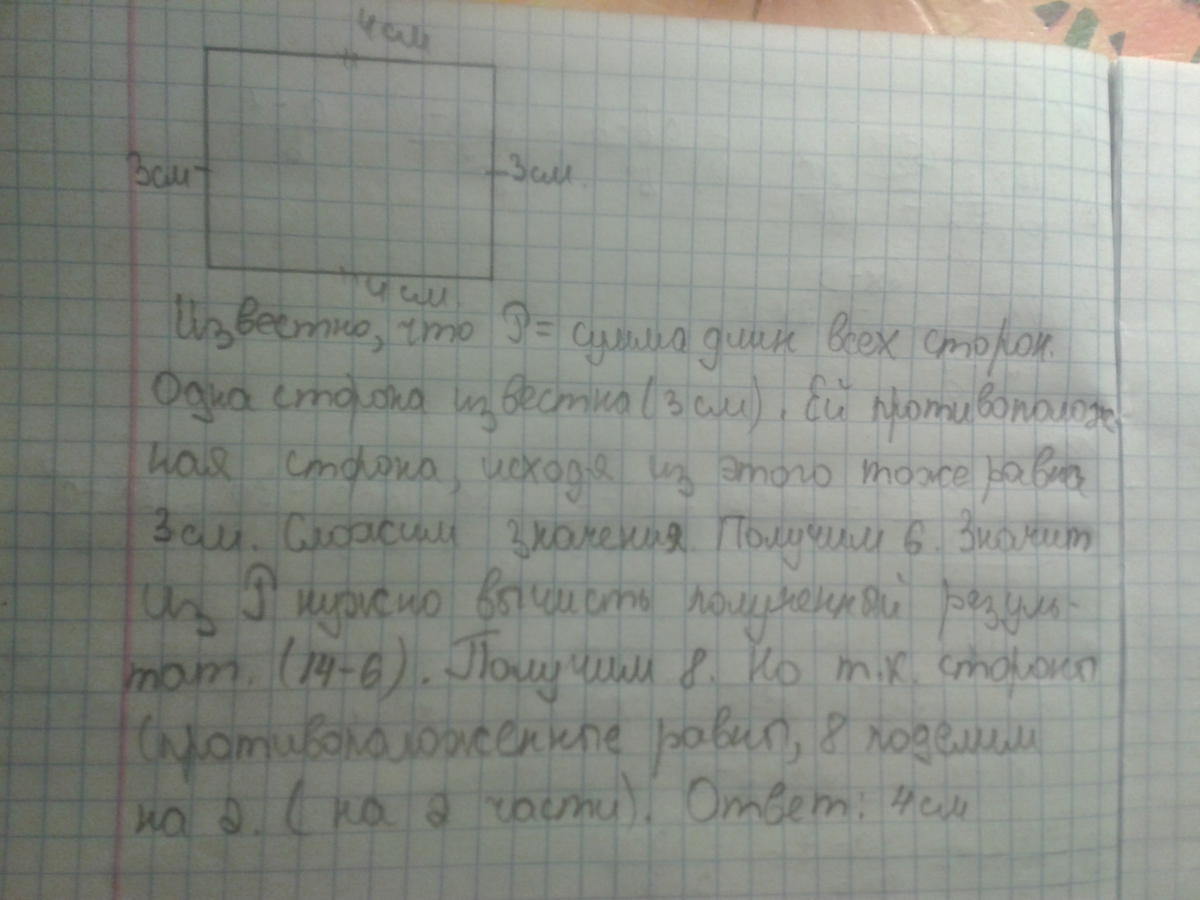 4см
3см
3см
4см
Известно, что P= сумма длин всех сторон.
Одна сторона известна (3 см). Ей противополож
ная сторона, исходя из этого тоже равна
3см. Сложим значения. Получим 6. Значит
из P нужно вычисть полученный резуль-
тат. (14-6). Получим 8. Но т.к. стороны
(противоположенные равны, 8 поделим
на 2. (на 2 части). Ответ: 4см